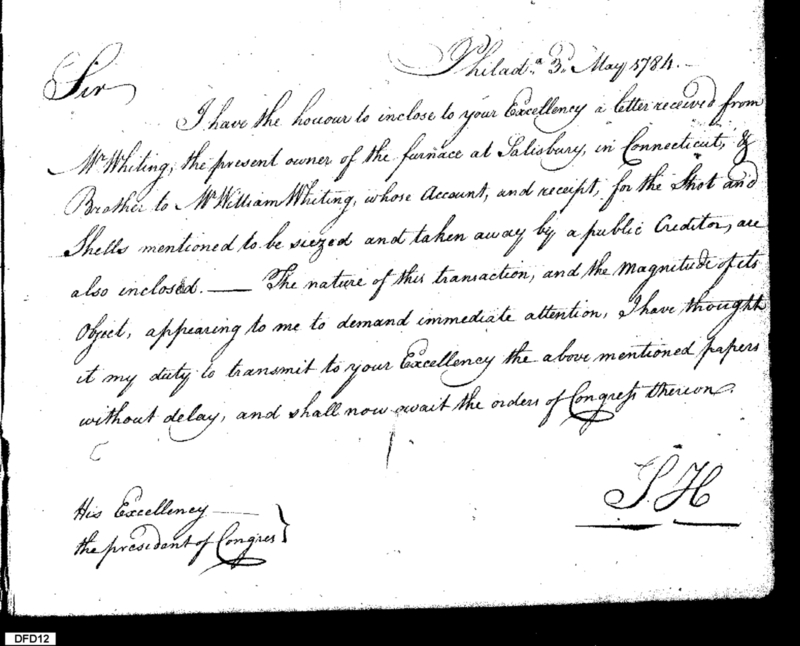 Philad.ª 3.d May 1784.—
Sir
I have the honour to inclose to your Excellency a letter received from
Mr Whiting, the present owner of the furnace at Salisbury, in Connecticut, &
Brother to Mr William Whiting, whose Account, and receipt, for the Shot and
Shells mentioned to be siezed and taken away by a public Creditor, are
also inclosed.— The nature of this transaction, and the magnitude of its
Object, appearing to me to demand immediate attention, I have thought
it my duty to transmit to your Excellency the above mentioned papers
without delay, and shall now await the orders of Congress thereon.
J H
His Excellency —
the president of Congres }
DFD12